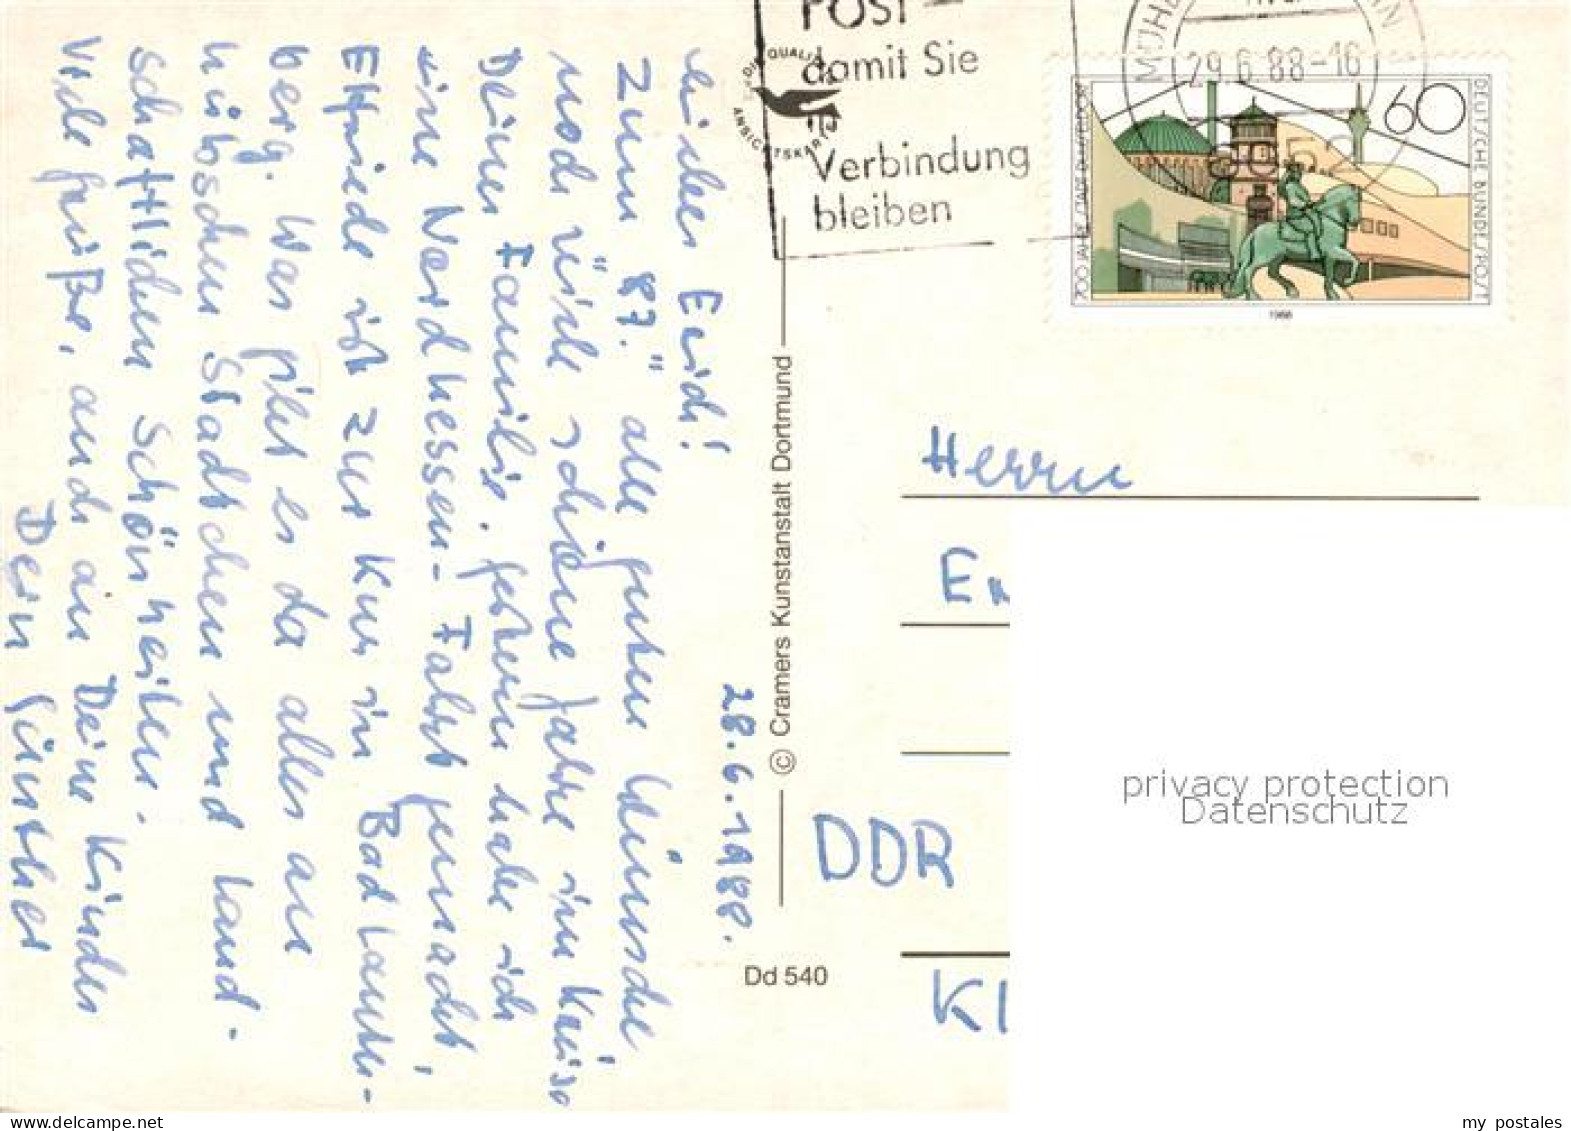 28.6.1988.
Lieber Erich!
Zum 87." alle guten Wünsche
noch viele schöne Jahre im Kreise
Deiner Familie. Gestern habe ich
eine Nordhessen-Fahrt gemacht,
Elfriede ist zur Kur in Bad Lauter-
berg. Was gibt es da alles an
hübschen Städtchen und land-
schaftlichen Schönheiten.
Viele Grüße, auch an Deine Kinder
Dein Günther
© Cramers Kunstanstalt Dortmund
Dd 540
QUALITÄT
ANSICHTSKARTE
POST
damit Sie
in
Verbindung
bleiben
29.6.88-16
700 JAHRE STADT DÜSSELDORF
60
DEUTSCHE BUNDESPOST
1988
Herrn
DDR
privacy protection
Datenschutz
my postales